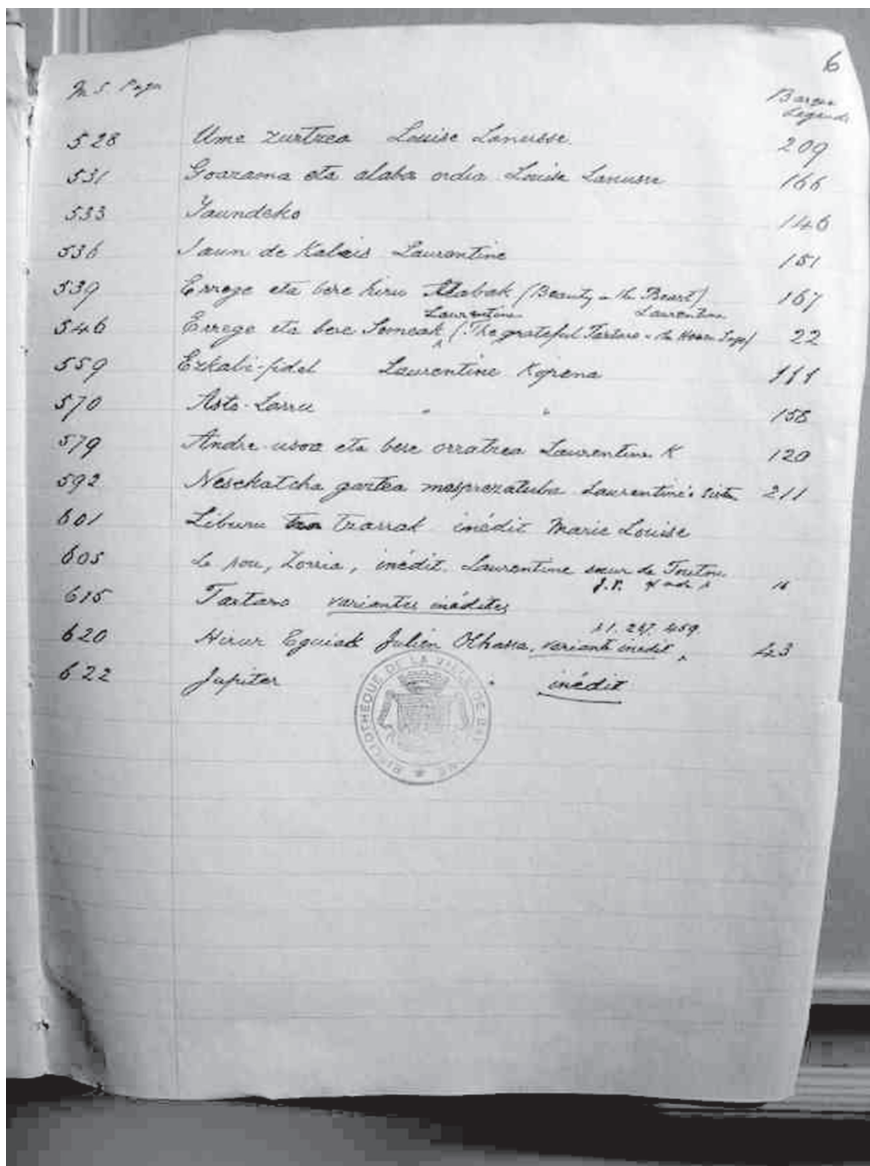 6
M S. Page Basque Legends
528 Ume zurtzea Louise Lanusse 209
531 Goazama eta alaba ordia Louise Lanusse 166
533 Jaundeko 146
536 Jaun de Kalais Laurentine 151
539 Errege eta bere hirur Alabak (Beauty & the Beast) Laurentine 167
546 Errege eta bere Semeak Laurentine (The grateful Tartaro & the Heren Suge) 22
559 Ezkabi-fidel Laurentine Kopena 111
570 Asto-Larru " " 158
579 Andre-usoa eta bere orratzea Laurentine K 120
592 Neskatcha gaztea mesprezatuba Laurentine's Sister 211
601 Liburu tzarrak inédit Marie Louise
605 Le sou, Zorria, inédit. Laurentine sœur de Toutou
615 Tartaro variantes inédites
11. 247. 459.
620 Hirur Eguiak Julien Olhasa, variant inédit 43
622 Jupiter " inédit
BIBLIOTHEQUE DE LA VILLE DE BAYONNE